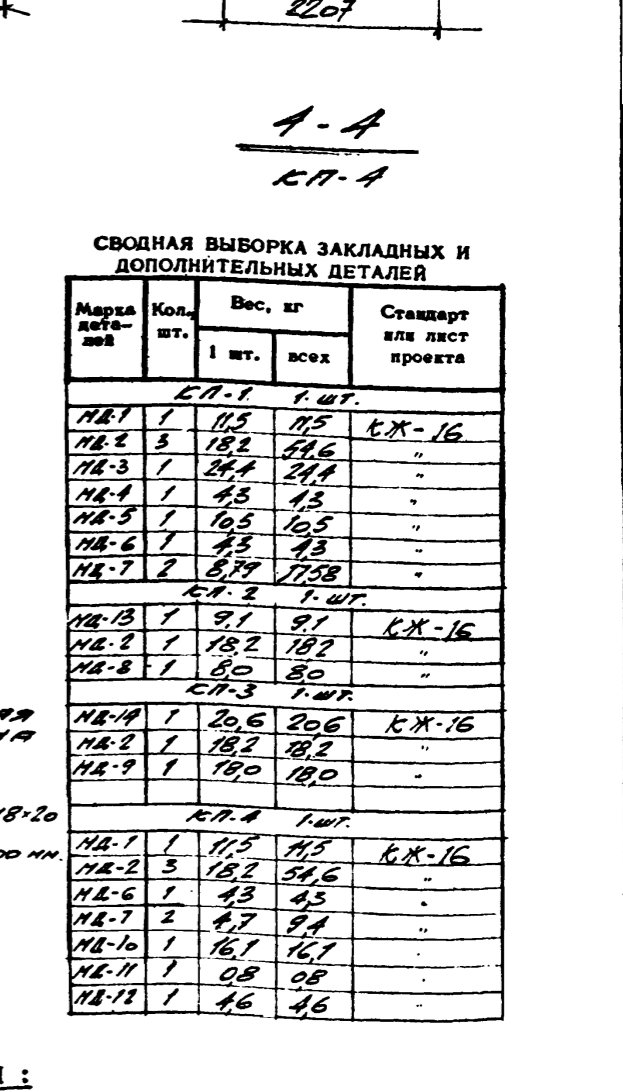 2207
4-4
КП-4
СВОДНАЯ ВЫБОРКА ЗАКЛАДНЫХ И
ДОПОЛНИТЕЛЬНЫХ ДЕТАЛЕЙ
Марка дета- лей Кол., шт. Вес, кг Стандарт или лист проекта
1 шт. всех
КП-1 1-шт.
МД-1 1 11,5 11,5 КЖ-16
МД-2 3 18,2 54,6 "
МД-3 1 24,4 24,4 "
МД-4 1 4,3 4,3 "
МД-5 1 10,5 10,5 "
МД-6 1 4,3 4,3 "
МД-7 2 8,79 17,58 "
КП-2 1-шт.
МД-13 1 9,1 9,1 КЖ-16
МД-2 1 18,2 18,2 "
МД-8 1 8,0 8,0 "
КП-3 1-шт.
МД-14 1 20,6 20,6 КЖ-16
МД-2 1 18,2 18,2 "
МД-9 1 18,0 18,0 "
КП-4 1-шт.
МД-1 1 11,5 11,5 КЖ-16
МД-2 3 18,2 54,6 "
МД-6 1 4,3 4,3 "
МД-7 2 4,7 9,4 "
МД-10 1 16,1 16,1 "
МД-11 1 0,8 0,8 "
МД-12 1 4,6 4,6 "
18×20